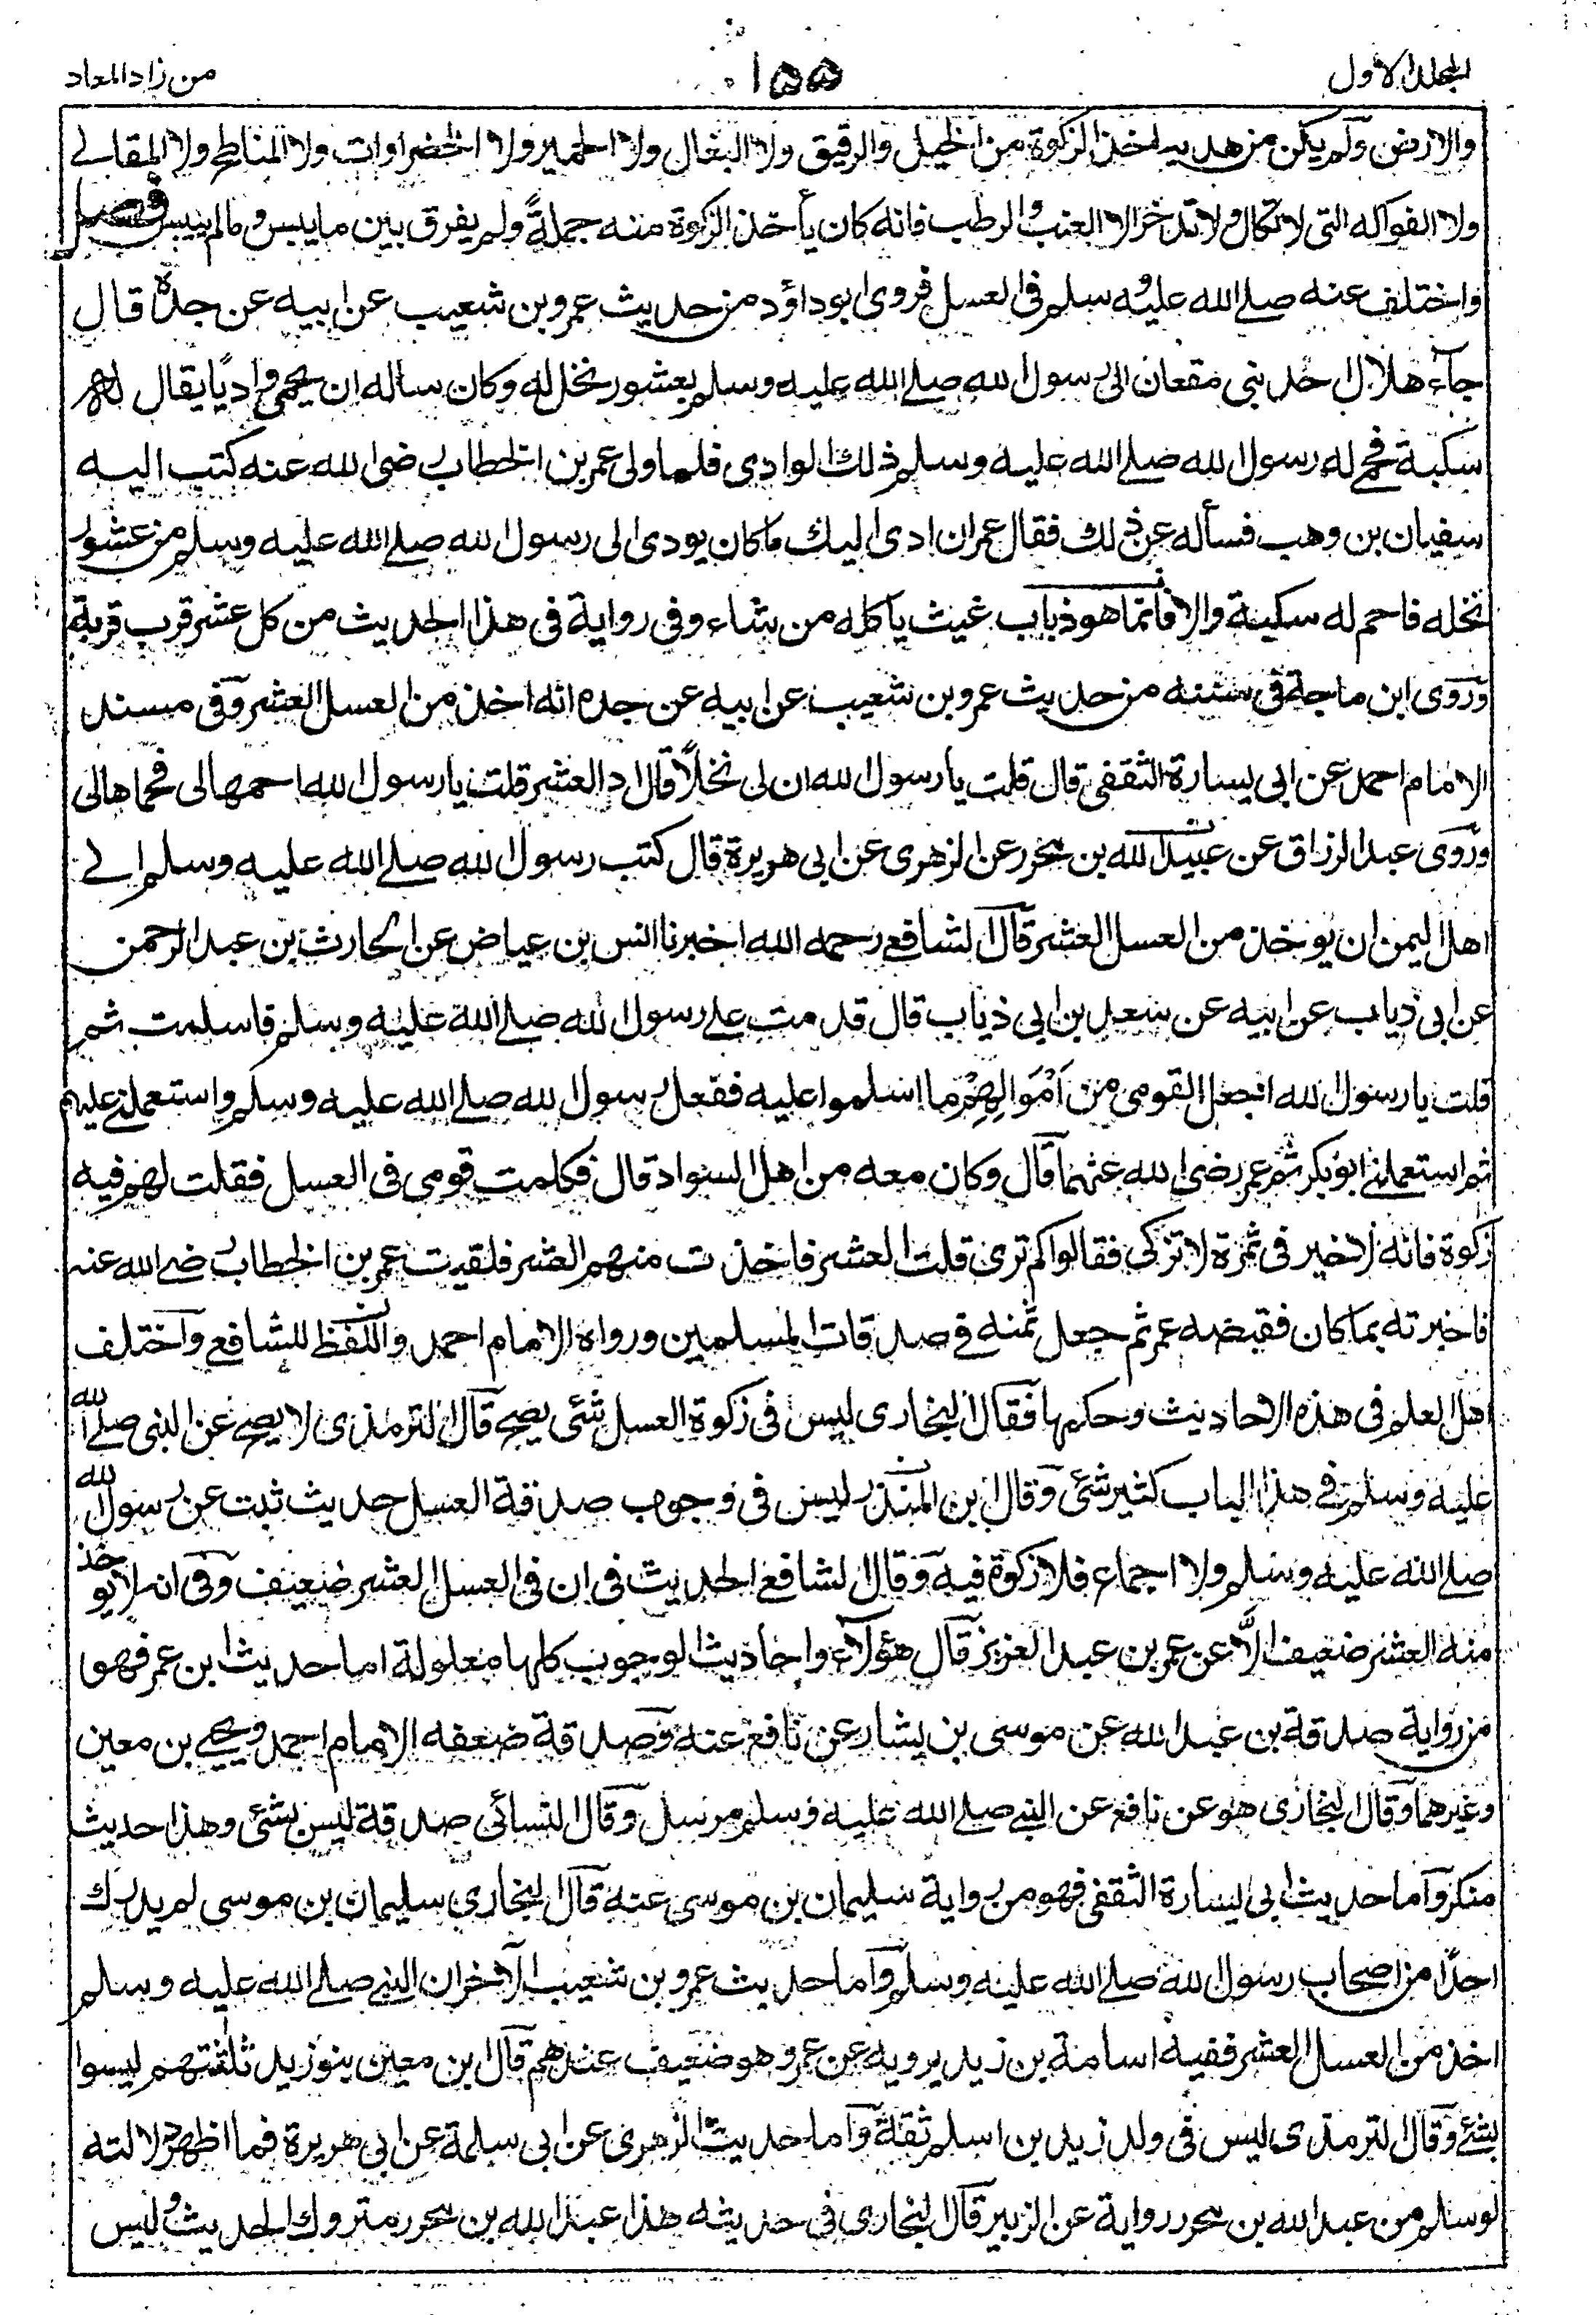 المجلد الاول
١٥٥
من زاد المعاد
والارض ولم يكن من هديه اخذ الزكوة من الخيل والرقيق ولا البغال ولا الحمير ولا الخضراوات ولا المناطح ولا المقاثي
ولا الفواكه التى لا تكال ولا تدخر الا العنب والرطب فانه كان يأخذ الزكوة منه جملةً ولم يفرق بين ما يبس وما لم ييبس فصل
واختلف عنه صلے الله عليه وسلم فى العسل فروى ابو داؤد من حديث عمرو بن شعيب عن ابيه عن جده قال
جآء هلال احد بنى متعان الى رسول الله صلے الله عليه وسلم بعشور نخل له وكان ساله ان يحمى واديًا يقال له
سكبة فحمے له رسول الله صلے الله عليه وسلم ذلك الوادى فلما ولى عمر بن الخطاب رضى الله عنه كتب اليه
سفيان بن وهب فسأله عن ذلك فقال عمر ان ادى اليك ما كان يودى الى رسول الله صلے الله عليه وسلم من عشور
نخله فاحم له سكينة والا فانما هو ذباب غيث يأكله من يشاء وفى رواية فى هذا الحديث من كل عشر قرب قربة
وروى ابن ماجة فى سننه من حديث عمرو بن شعيب عن ابيه عن جده انه اخذ من العسل العشر وفى مسند
الامام احمد عن ابى يسارة الثقفى قال قلت يا رسول الله ان لى نخلاً قال اد العشر قلت يا رسول الله احمها لى فحماها لى
وروى عبد الرزاق عن عبيد الله بن محرر عن الزهرى عن ابى هريرة قال كتب رسول الله صلے الله عليه وسلم الے
اهل اليمن ان يوخذ من العسل العشر قال الشافعے رحمه الله اخبرنا انس بن عياض عن الحارث بن عبد الرحمن
عن ابى ذياب عن ابيه عن سعد بن ابى ذياب قال قدمت علے رسول الله صلے الله عليه وسلم فاسلمت ثم
قلت يا رسول الله اتجعل لقومى من اَمْوَالِهِمْ ما اسلموا عليه ففعل رسول الله صلے الله عليه وسلم واستعملنے عليهم
ثم استعملنے ابو بكر ثم عمر رضى الله عنهما قال وكان معه من اهل السواد قال فكلمت قومى فى العسل فقلت لهم فيه
زكوة فانه لا خير فى ثمرة لا تزكى فقالوا كم ترى قلت العشر فاخذت منهم العشر فلقيت عمر بن الخطاب رضے الله عنه
فاخبرته بما كان فقبضه عمر ثم جعل ثمنه فے صدقات المسلمين ورواه الامام احمد واللفظ للشافعے واختلف
اهل العلم فى هذه الاحاديث وحكمها فقال البخارى ليس فى زكوة العسل شئى يصح قال الترمذى لا يصح عن النبى صلے الله
عليه وسلم فے هذا الباب كثير شئى وقال ابن المنذر ليس فى وجوب صدقة العسل حديث ثبت عن رسول الله
صلے الله عليه وسلم ولا اجماع فلا زكوة فيه وقال الشافعے الحديث فى ان فى العسل العشر ضعيف وفى انه لا يوخذ
منه العشر ضعيف الَّا عن عمر بن عبد العزيز قال هؤلآء واحاديث الوجوب كلها معلولة اما حديث ابن عمر فهو
من رواية صدقة بن عبد الله عن موسى بن يشار عن نافع عنه وصدقة ضعفه الامام احمد ويحيے بن معين
وغيرهما وقال البخارى هو عن نافع عن النبے صلے الله عليه وسلم مرسل وقال النسائى صدقة ليس بشئى وهذا حديث
منكر واما حديث ابى ليسارة الثقفى فهو من رواية سليمان بن موسى عنه قال البخارى سليمان بن موسى لم يدرك
احدًا من اصحاب رسول الله صلے الله عليه وسلم واما حديث عمرو بن شعيب الآخر ان النبے صلے الله عليه وسلم
اخذ من العسل العشر ففيه اسامة بن زيد يرويه عن عمرو وهو ضعيف عندهم قال ابن معين بنو زيد ثلثتهم ليسوا
بشئے وقال الترمذى ليس فى ولد زيد بن اسلم ثقة واما حديث الزهرى عن ابى سلمة عن ابى هريرة فما اظهر دلالته
لو سلم من عبد الله بن محرر رواية عن الزبير قال البخارى فى حديثه هذا عبد الله بن محرر متروك الحديث وليس